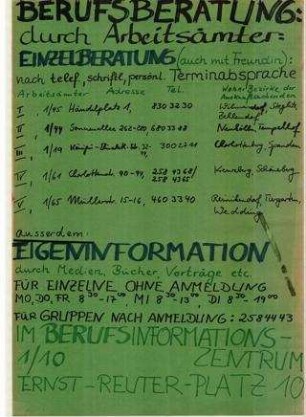 BERUFSBERATUNG:
durch Arbeitsämter:
EINZELBERATUNG (auch mit Freundin):
nach telef., schriftl., persönl. Terminabsprache
Arbeitsämter Adresse Tel. Wohn-Bezirke der
I, 1/45 Händelplatz 1, 830 32 30 Wilmersdorf, Steglitz,
Zehlendorf
II, 1/44 Sonnenallee 262- Neukölln, Tempelhof
III, 1/19 Charlottenburg, Spandau
IV, 1/61 Charlottenstr. 90-94, 258 4368/ Kreuzberg, Schöneberg
258 4365
V, 1/65 Müllerstr. 15-16, 460 3340 Reinickendorf, Tiergarten,
Wedding
Ausserdem:
EIGENINFORMATION
durch Medien, Bücher, Vorträge etc.
FÜR EINZELNE OHNE ANMELDUNG
MO, DO, FR 8 30 - MI 8 30 - DI 8 30 - 19 00
FÜR GRUPPEN NACH ANMELDUNG: 2584443
IM BERUFSINFORMATIONS-
1/10 ZENTRUM
ERNST-REUTER-PLATZ 10